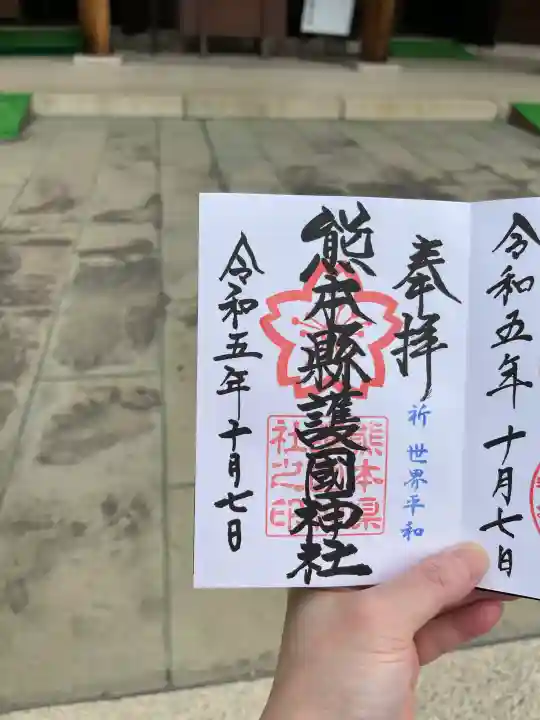 令和五年十月七日
奉拝
祈 世界平和
熊本縣護國神社
熊本県
社之印
令和五年十月七日